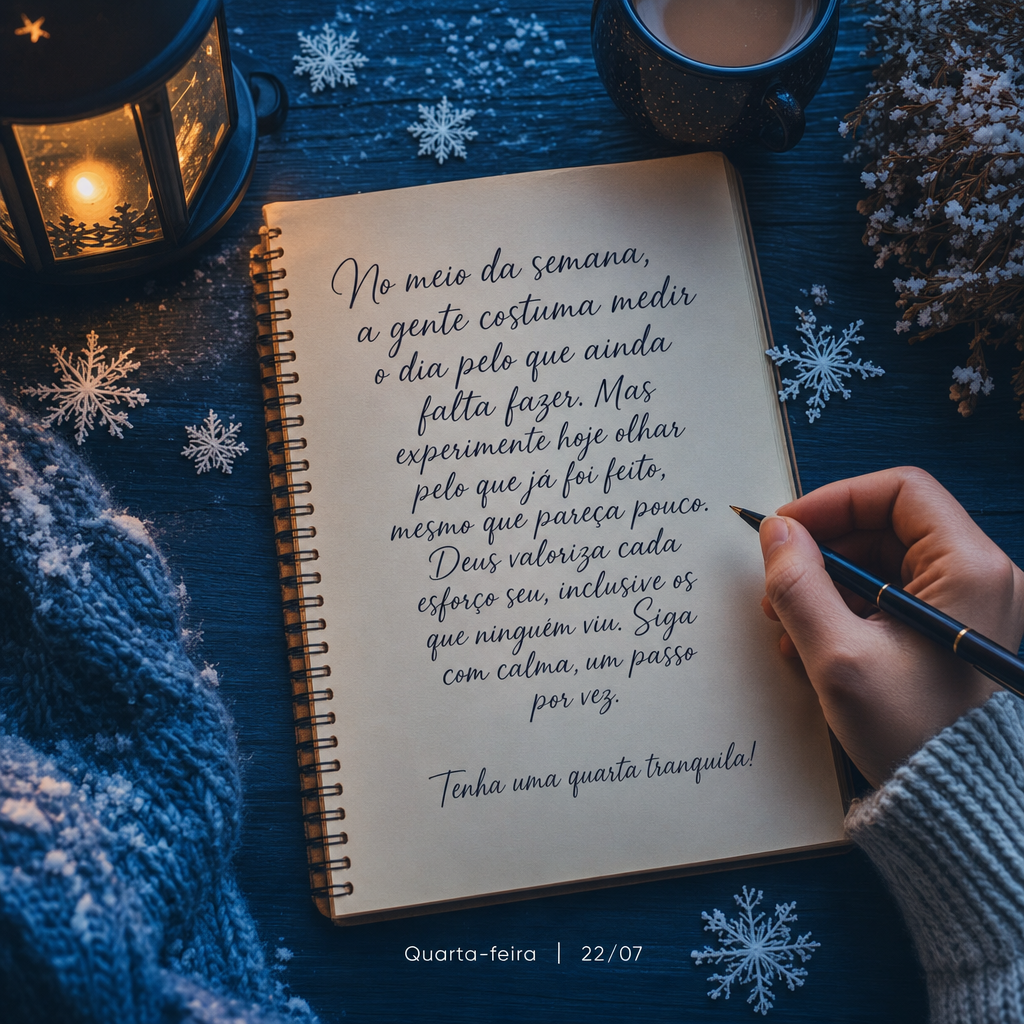 No meio da semana,
a gente costuma medir
o dia pelo que ainda
falta fazer. Mas
experimente hoje olhar
pelo que já foi feito,
mesmo que pareça pouco.
Deus valoriza cada
esforço seu, inclusive os
que ninguém viu. Siga
com calma, um passo
por vez.
Tenha uma quarta tranquila!
Quarta-feira | 22/07